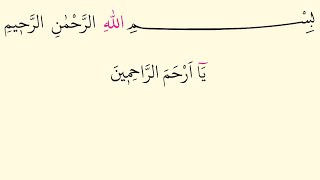 بِسْمِ اللهِ الرَّحْمٰنِ الرَّح۪يمِ
يَٓا اَرْحَمَ الرَّاحِم۪ينَ